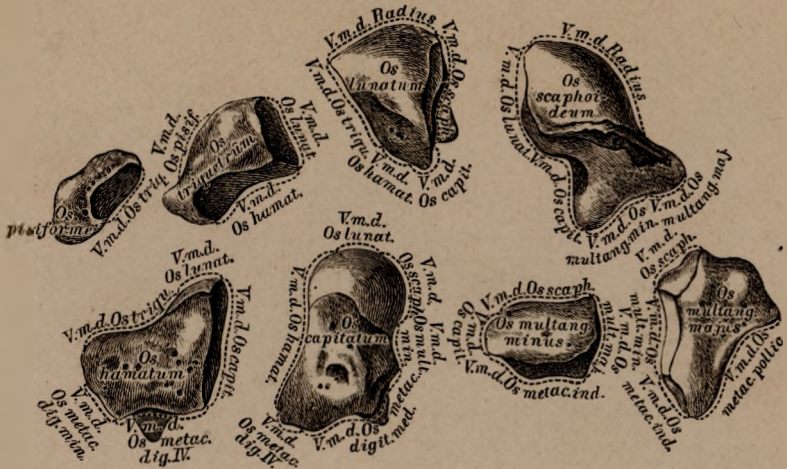 Os
pisiforme
V.m.d.Os triq.
V.m.d.
Os pisif.
Os
triquetrum
V.m.d.
Os lunat.
V.m.d.
Os hamat.
V.m.d. Radius
V.m.d.Os scaph.
Os
lunatum
V.m.d.Os triqu.
V.m.d.
Os hamat.
V.m.d.
Os capit.
V.m.d.Radius.
V.m.d.Os lunat.
Os
scaphoi
deum
V.m.d.Os capit.
V.m.d.Os
multang.min.
V.m.d.Os
multang.maj.
V.m.d.
Os lunat.
V.m.d.Os triqu.
V.m.d.Os capit.
Os
hamatum
V.m.d.
Os metac.
dig.min.
V.m.d.
Os metac.
dig.IV.
V.m.d.
Os lunat.
V.m.d.
Os scaph.
V.m.d.Os hamat.
Os
capitatum
V.m.d.
Os mult.
min.
V.m.d.
Os metac.
dig.IV.
V.m.d.Os
metac.
digit.med.
V.m.d.Os scaph.
V.m.d.
Os capit.
Os multang
minus.
V.m.d.Os
mult.maj.
V.m.d.Os metac.ind.
V.m.d.
Os scaph.
V.m.d.Os
mult.min.
Os
multang
majus
V.m.d.Os
metac.ind.
V.m.d.Os
metac.pollic